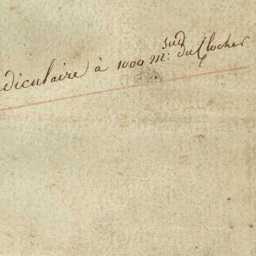 sud
diculaire à 1000 m: du Clocher